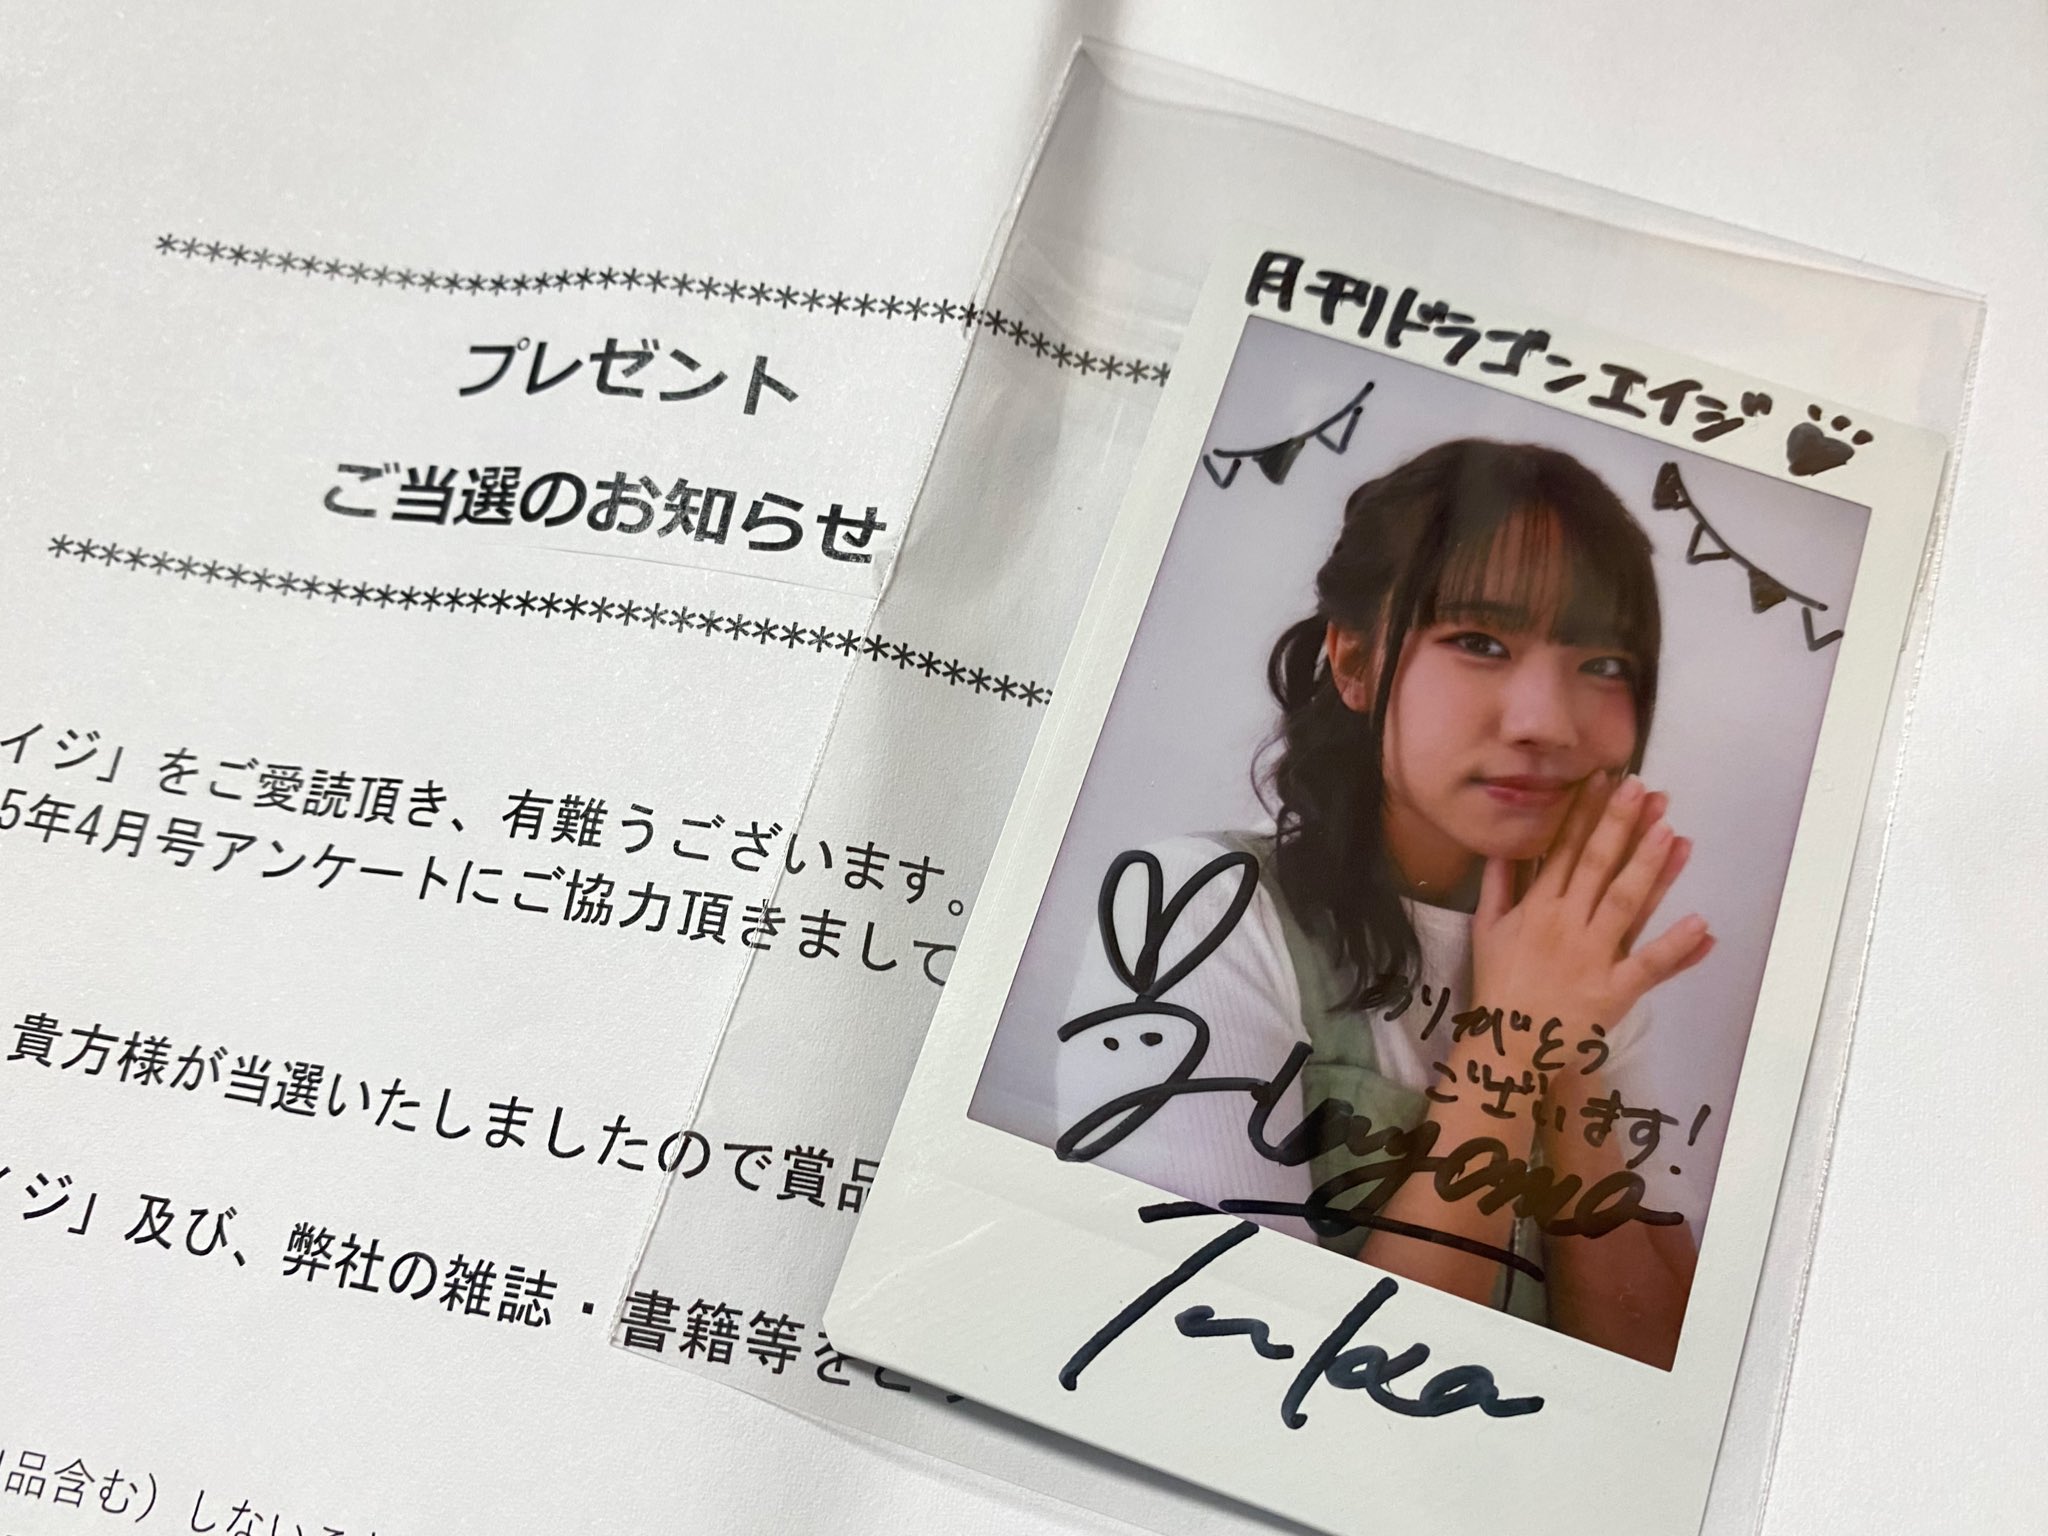 **********************************************
プレゼント
ご当選のお知らせ
**********************************************
イジ」をご愛読頂き、有難うございます。
5年4月号アンケートにご協力頂きまして
貴方様が当選いたしましたので賞品
イジ」及び、弊社の雑誌・書籍等をご
品含む）しない
月刊ドラゴンエイジ
ありがとう
ございます!